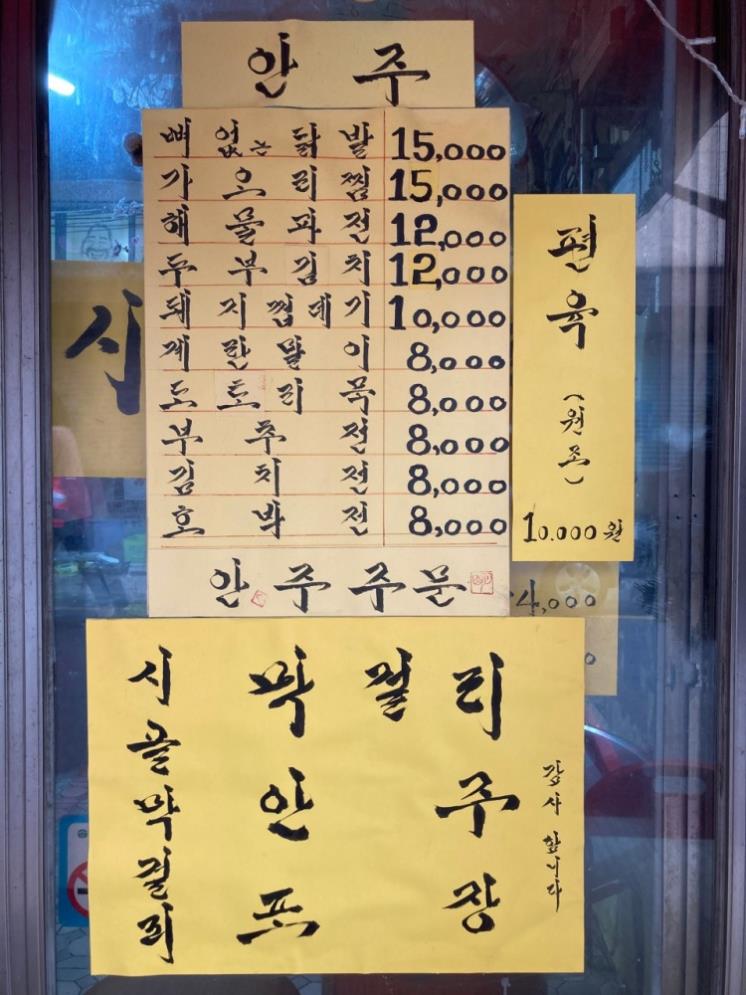 안주
뼈없는닭발 15,000
가오리찜 15,000
해물파전 12,000
두부김치 12,000
돼지껍데기 10,000
계란말이 8,000
도토리묵 8,000
부추전 8,000
김치전 8,000
호박전 8,000
안주주문
편육
(원조)
10.000원
시
4,000
시골막걸리
막걸리
안주
포장
감사합니다